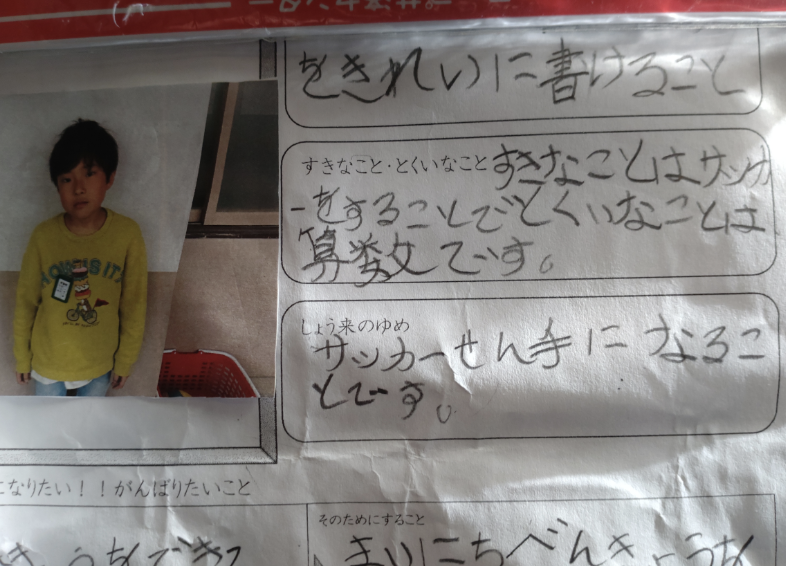 をきれいに書けること
すきなこと・とくいなこと すきなことはサッカ
ーをすることでとくいなことは
算数です。
しょう来のゆめ
サッカーせん手になるこ
とです。
になりたい！！がんばりたいこと
そのためにすること
まいにちべんきょうを